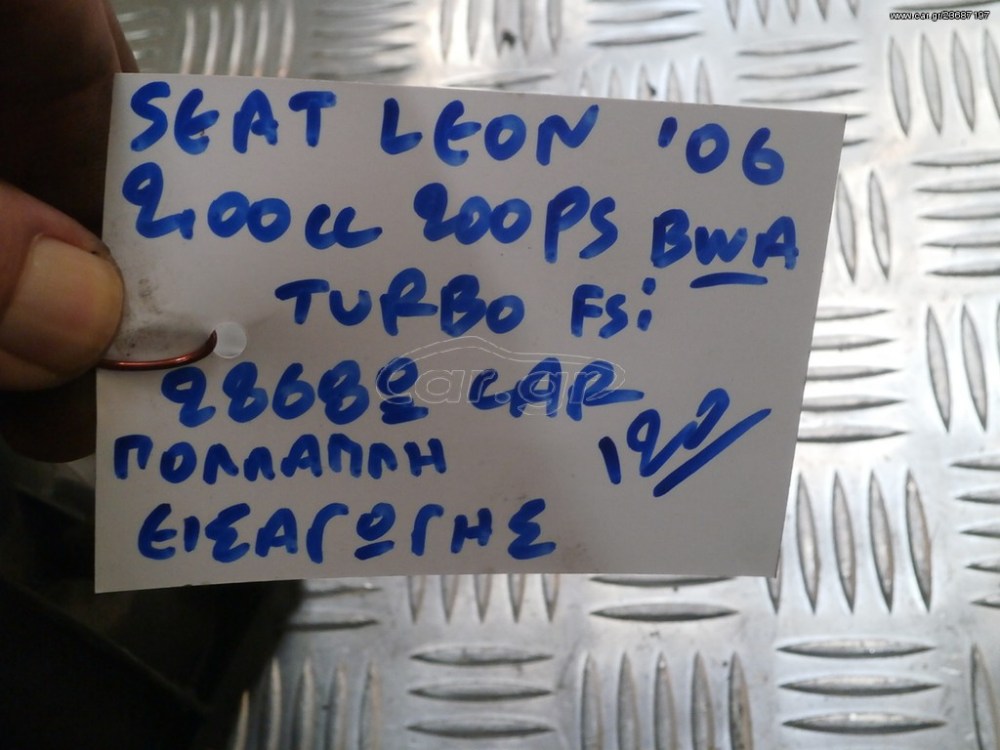 www.car.gr/23687197
SEAT LEON '06
2,00cc 200PS BWA
TURBO FSi
car.gr
CAR
120
ΠΟΛΛΑΠΛΗ
ΕΙΣΑΓΩΓΗΣ